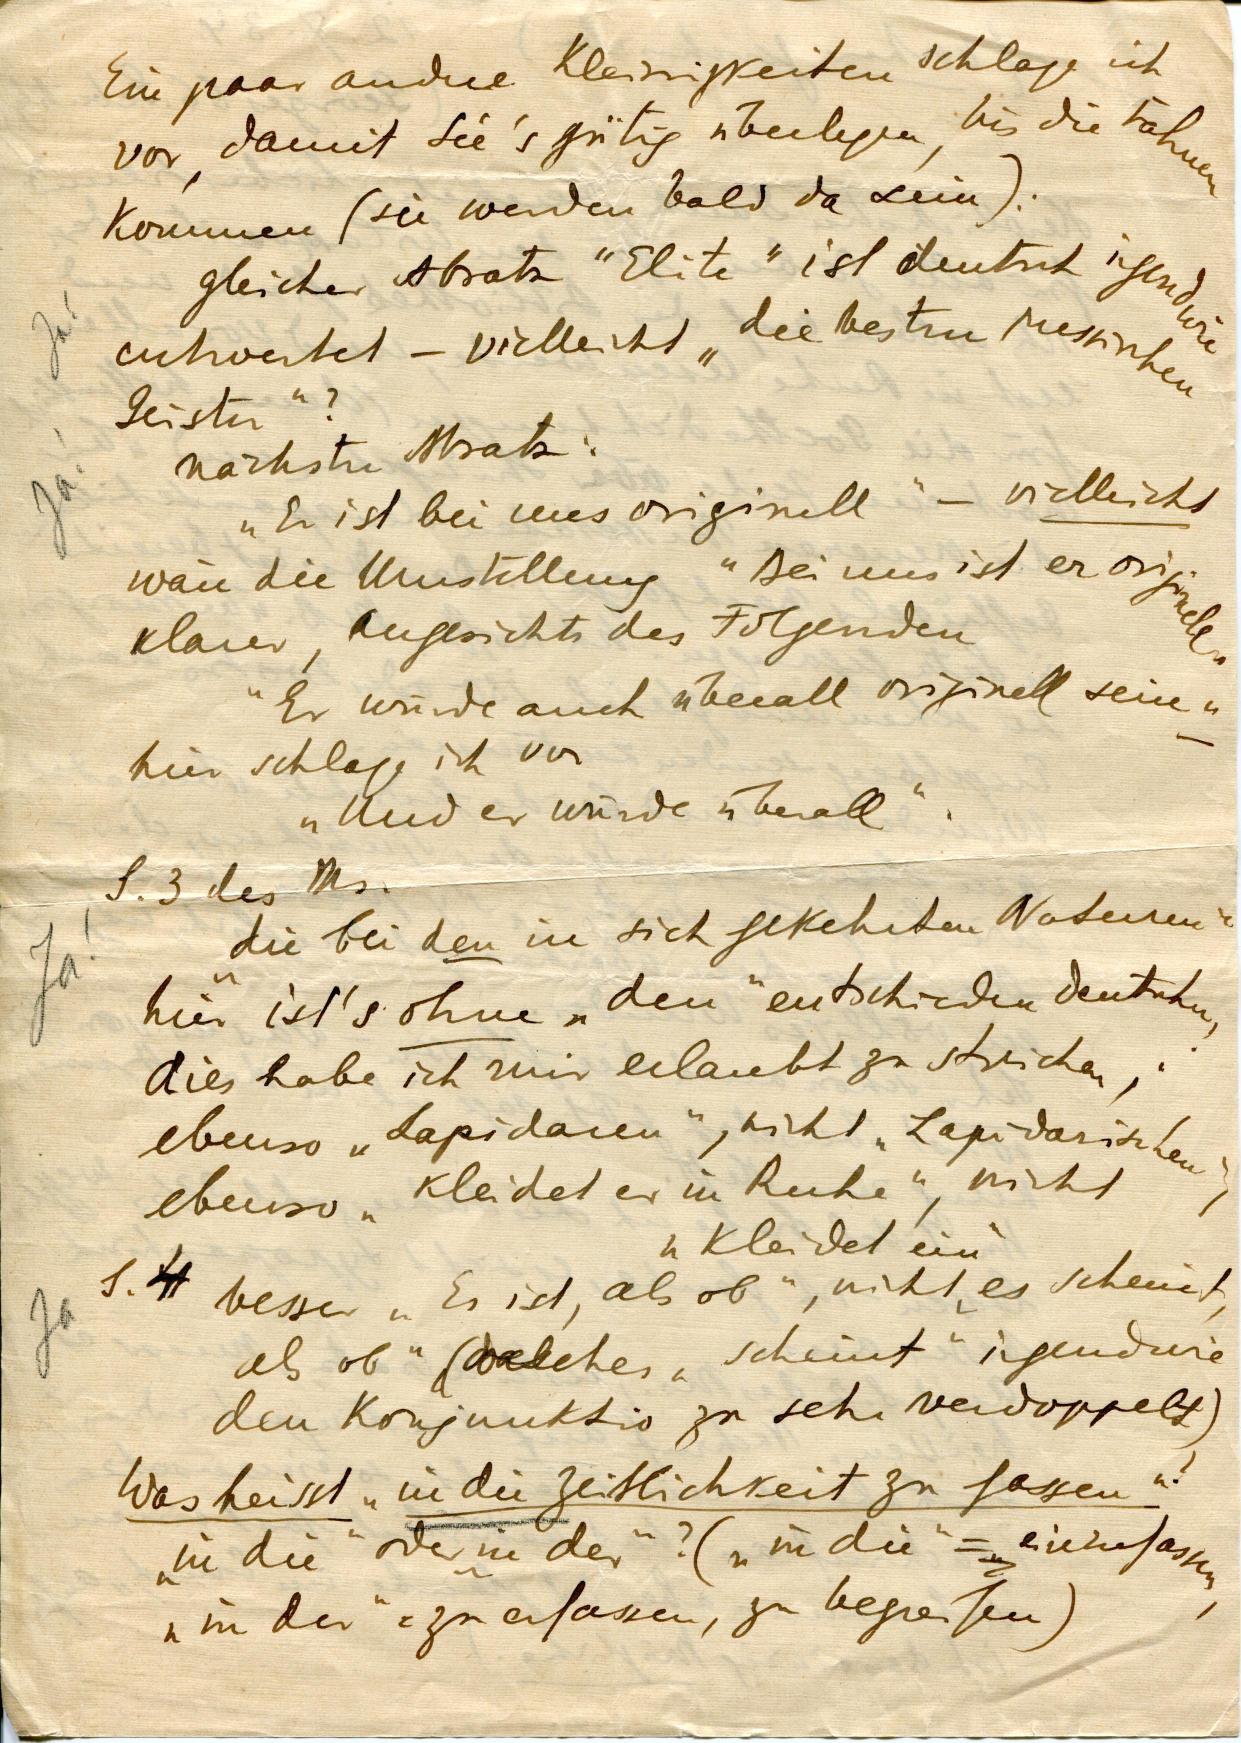 Ein paar andre Kleinigkeiten schlage ich
vor, damit Sie's gütig überlegen, bis die Fahnen
kommen (sie werden bald da sein):
gleicher Absatz "Elite" ist deutsch irgendwie
Ja!
entwertet – vielleicht „die besten russischen
Geister"?
nächster Absatz:
Ja!
„Er ist bei uns originell" – vielleicht
wäre die Umstellung "Bei uns ist er originell"
klarer, angesichts des Folgenden
"Er würde auch überall originell sein"
hier schlage ich vor
„Und er würde überall".
S. 3 des Ms.
Ja!
die bei den in sich gekehrten Naturen
hier ist's ohne „den" entschieden deutscher,
dies habe ich mir erlaubt zu streichen,
ebenso „Lapidaren", nicht „Lapidarischen"
ebenso „kleidet er in Ruhe", nicht
„kleidet ein"
S. 4 besser „Es ist, als ob", nicht „es scheint,
Ja
als ob" (welches „scheint" irgendwie
den Konjunktiv zu sehr verdoppelt)
Was heisst „in die Zeitlichkeit zu fassen"?
„in die" oder „in der"? („in die" = einzufassen,
„in der" = zu erfassen, zu begreifen)